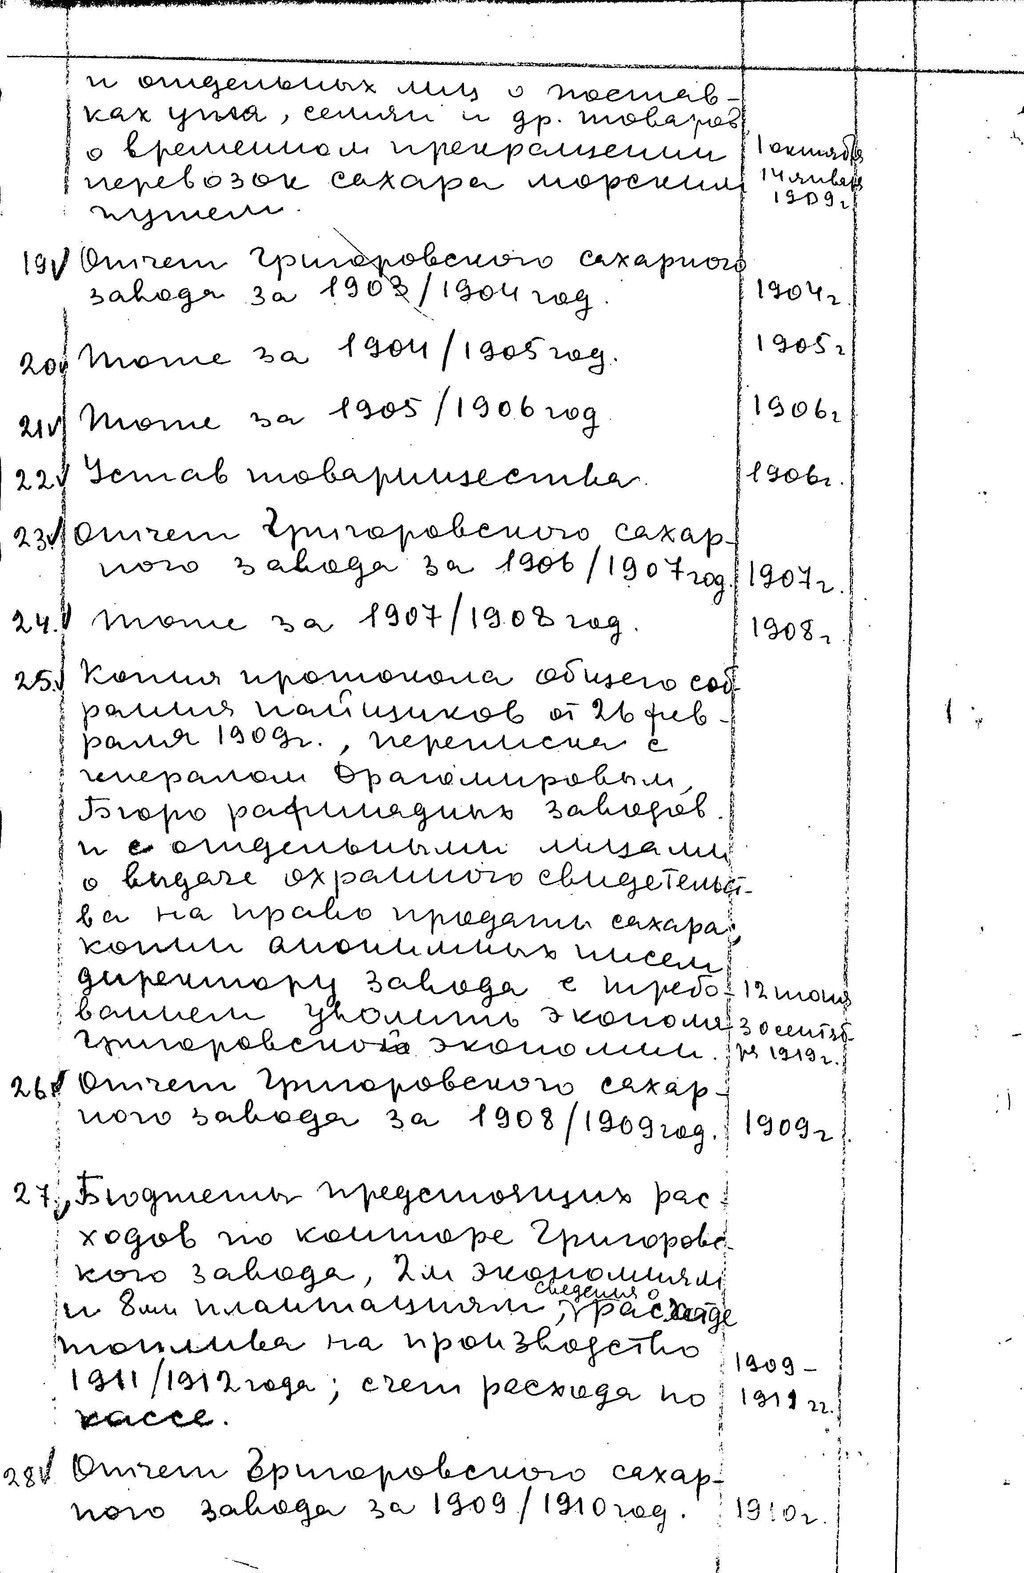 и отдельных лиц о постав-
ках угля, семян и др. товаров
о временном прекращении 1 октября
перевозок сахара морским 14 января
путем. 1909г
19 Отчет Григоровского сахарного
завода за 1903/1904 год. 1904г.
20 Тоже за 1904/1905 год. 1905г
21 Тоже за 1905/1906 год 1906г
22 Устав товарищества. 1906г.
23 Отчет Григоровского сахар-
ного завода за 1906/1907 год. 1907г.
24. Тоже за 1907/1908 год. 1908г
25. Копия протокола общего соб-
рания пайщиков от 26 фев-
раля 1909г., переписка с
генералом Драгомировым,
Бюро рафинадных заводов.
и с отдельными лицами
о выдаче охранного свидетельст-
ва на право продажи сахара;
копии анонимных писем
директору завода с требо- 12 июня
ванием уволить эконома 30 сентяб-
Григоровской экономии. ря 1919г.
26 Отчет Григоровского сахар-
ного завода за 1908/1909 год. 1909г
27. Бюджеты предстоящих рас-
ходов по конторе Григоровс-
кого завода, 2м экономиям
сведения о
и 8ми плантациям, расходе
топлива на производство
1911/1912 года; счет расхода по 1909-
кассе. 1912 гг.
28 Отчет Григоровского сахар-
ного завода за 1909/1910 год. 1910г.